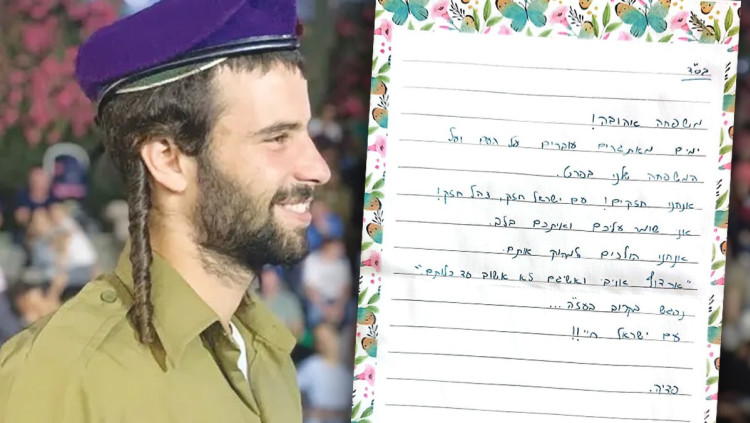 בס"ד
משפחה אהובה!
ימים מאתגרים עוברים על העם ועל
המשפחה שלנו בפרט.
אנחנו חזקים! עם ישראל חזק, צהל חזק!
אני שומר עליכם ואתכם בלב.
אנחנו הולכים למחוק אותם.
"ארדוף אויבי ואשיגם לא אשוב עד כלותם"
נפגש בקרוב בעז"ה...
עם ישראל חי!!
פדיה.